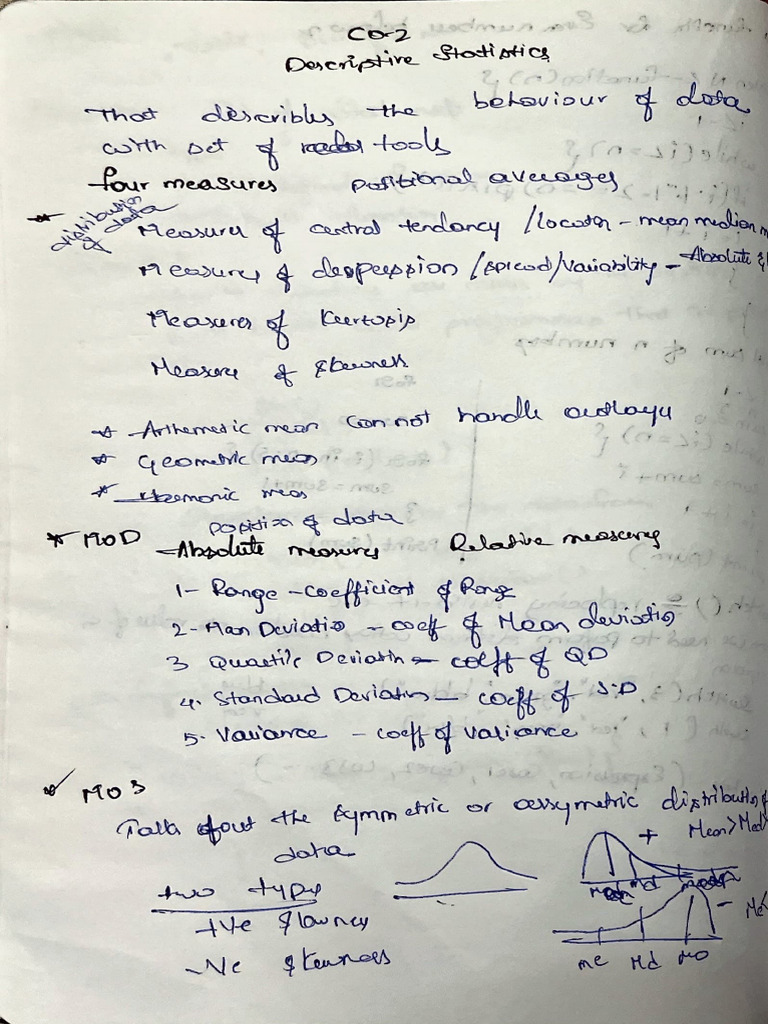 CO-2
Descriptive Statistics
That describles the behaviour of data
with set of tools
four measures positional averages
distribution of data
Measures of central tendancy / locaton - mean median m
Measures of despersion / spread / variability - Absolute &
Measures of Kurtosis
Measure of Skewness
Arthemetic mean can not handle
Geometric mean
Harmonic mean
position of data
MOD Absolute measures Relative measures
1- Range - coefficient of Range
2- Mean Deviatio - coeff of Mean deviation
3 Quartile Deviatin - coeff of QD
4. Standard Deviation - coeff of S.D
5. Variance - coeff of variance
MOS
Talks about the symmetric or assymetric distribution of
data
+ Mean > Med
two types
+Ve Skewness
md
-Ve Skewness
- Me<
me Md Mo